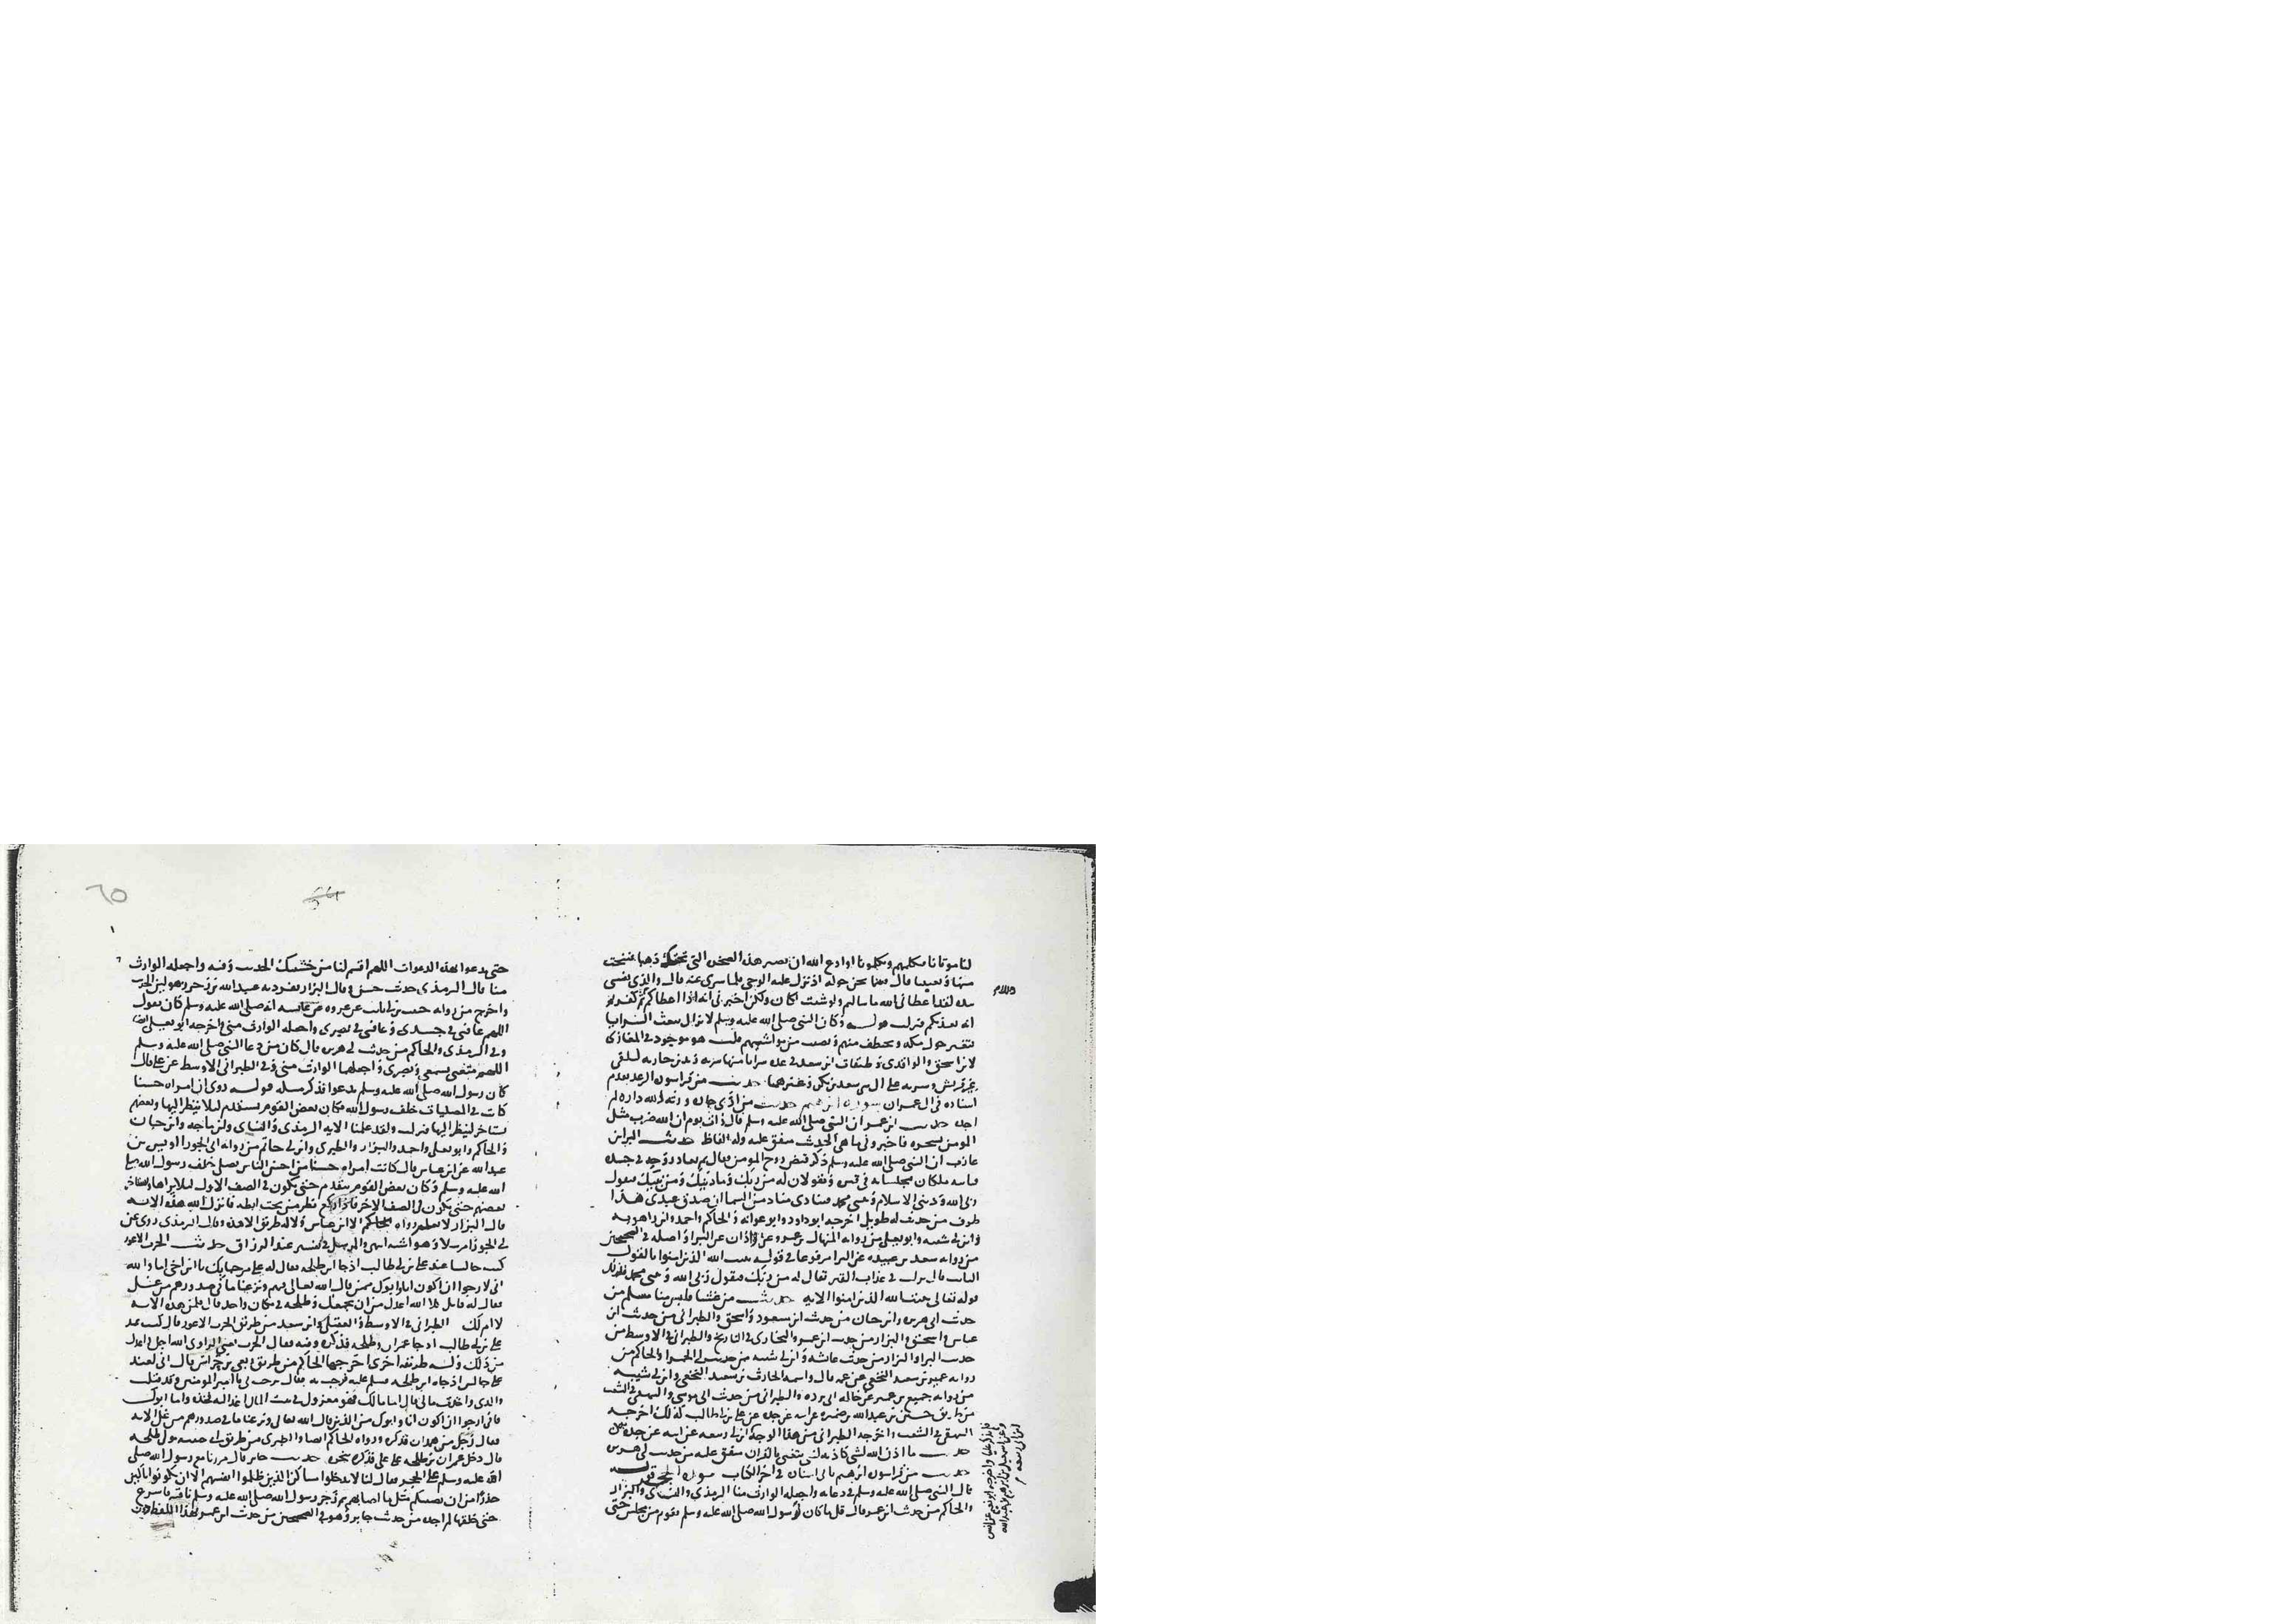 لنا موتانا فنكلمهم ويكلمونا او ادع الله ان يصير هذه الصخرة التي تحتك ذهبا فننحت
منها وتغنينا قال فبينا نحن حوله اذ نزل عليه الوحي فلما سري عنه قال والذي نفسي
بيده لقد اعطاني الله ما سالتم ولو شئت لكان ولكن اخبرني انه اذا اعطاكم ثم كفرتم
انه يعذبكم فنزلت قوله وكان النبي صلى الله عليه وسلم لا يزال يبعث السرايا
فتغير حول مكة وتخطف منهم وتصيب من مواشيهم قلت هو موجود في المغازي
لابن اسحق والواقدي وطبقات ابن سعد في عدة سرايا منها سرية زيد بن حارثة لتلقي
عير قريش وسرية علي الى بني سعد بن بكر وغيرهما حديث من قرا سورة الرعد تقدم
اسناده في ال عمران سورة ابرهيم حديث من اذى جاره ورثه الله داره لم
اجده حديث ابن عمر ان النبي صلى الله عليه وسلم قال ذات يوم ان الله ضرب مثل
المومن شجرة فاخبروني ما هي الحديث متفق عليه وله الفاظ حديث البرا بن
عازب ان النبي صلى الله عليه وسلم ذكر قبض روح المومن فقال ثم تعاد روحه في جسده
فياتيه ملكان فيجلسانه في قبره ويقولان له من ربك وما دينك ومن نبيك فيقول
ربي الله وديني الاسلام ونبيي محمد فينادي مناد من السما ان صدق عبدي هذا
طرف من حديث له طويل اخرجه ابو داود وابو عوانة والحاكم واحمد وابن راهويه
وابن ابي شيبة وابو يعلى من رواية المنهال بن عمرو عن زاذان عن البرا واصله في الصحيحين
من رواية سعد بن عبيدة عن البرا مرفوعا في قوله يثبت الله الذين امنوا بالقول
الثابت قال نزلت في عذاب القبر يقال له من ربك فيقول ربي الله ونبيي محمد فذلك
قوله تعالى يثبت الله الذين امنوا الاية حديث من غشنا فليس منا مسلم من
حديث ابي هريرة وابن حبان من حديث ابن مسعود واسحق والطبراني من حديث ابن
عباس واسحق والبزار من حديث ابن عمر والبخاري في التاريخ والطبراني في الاوسط من
حديث البرا والبزار من حديث عائشة وابن ابي شيبة من حديث ابي الحمرا والحاكم من
رواية عمير بن سعيد النخعي عن عمه قال واسمه الحارث بن سعيد النخعي وابن ابي شيبة
من رواية جميع بن عمير عن خاله ابي بردة والطبراني من حديث ابي موسى والبيهقي في الشعب
من طريق حسين بن عبدالله بن ضميرة عن ابيه عن جده عن علي بن ابي طالب كذلك اخرجه
البيهقي في الشعب واخرجه الطبراني من هذا الوجه
حديث ما اذن الله لشي كاذنه لنبي يتغنى بالقران متفق عليه من حديث ابي هريرة
حديث من قرا سورة ابرهيم ياتي اسناده في اخر الكتاب سورة الحجر قوله
قال النبي صلى الله عليه وسلم في دعائه واجعله الوارث منا الترمذي والنسائي والبزار
والحاكم من حديث ابن عمر قال قل ما كان رسول الله صلى الله عليه وسلم يقوم من مجلس حتى
حتى يدعو بهذه الدعوات اللهم اقسم لنا من خشيتك الحديث وفيه واجعله الوارث
منا قال الترمذي حديث حسن وقال البزار تفرد به عبيد الله بن زحر وهو لين الحديث
واخرج من رواية حبيب بن ابي ثابت عن عروة عن عائشة انه صلى الله عليه وسلم كان يقول
اللهم عافني في جسدي وعافني في بصري واجعله الوارث مني واخرجه ابو يعلى ايضا
وفي الترمذي والحاكم من حديث ابي هريرة قال كان من دعا النبي صلى الله عليه وسلم
اللهم متعني بسمعي وبصري واجعلهما الوارث مني وفي الطبراني الاوسط عن علي قال
كان رسول الله صلى الله عليه وسلم يدعو فذكر مثله قوله روي ان امراة حسنا
كانت في المصليات خلف رسول الله فكان بعض القوم يستقدم ليلا ينظر اليها وبعضهم
يستاخر لينظر اليها فنزلت ولقد علمنا الاية الترمذي والنسائي وابن ماجه وابن حبان
والحاكم وابو يعلى واحمد والبزار والطبري وابن ابي حاتم من رواية ابي الجوزا اوس بن
عبدالله عن ابن عباس قال كانت امراة حسنا من احسن الناس تصلي خلف رسول الله صلى
الله عليه وسلم وكان بعض القوم يتقدم حتى يكون في الصف الاول ليلا يراها ويستاخر
بعضهم حتى يكون في الصف الاخر فاذا ركع نظر من تحت ابطه فانزل الله هذه الاية
قال البزار لا نعلم رواه الا ابن عباس ولا له طريق الا هذه وقال الترمذي روي عن
ابي الجوزا مرسلا وهو اشبه انتهى والمرسل في تفسير عبد الرزاق حديث الحرث الاعور
كنت جالسا عند علي بن ابي طالب اذ جا ابن طلحة فقال له علي مرحبا بك يا ابن اخي اما والله
اني لارجو ان اكون انا وابوك ممن قال الله تعالى فيهم ونزعنا ما في صدورهم من غل
فقال له قائل كلا الله اعدل من ان يجمعك وطلحة في مكان واحد قال فلمن هذه الاية
لا ام لك الطبراني في الاوسط والعقيلي وابن سعد من طريق الحرث الاعور قال كنت عند
علي بن ابي طالب اذ جا عمران بن طلحة فذكره وفيه فقال الحرث يعني الراوي الله اجل واعدل
من ذلك وله طريقة اخرى اخرجها الحاكم من طريق ربعي بن حراش قال اني لعند
علي جالس اذ جا ابن طلحة فسلم عليه فرحب به فقال ترحب بي يا امير المومنين وقد قتلت
والدي واخذت مالي قال اما مالك فهو معزول في بيت المال اغد اليه فخذه واما ابوك
فاني ارجو ان اكون انا وابوك من الذين قال الله تعالى ونزعنا ما في صدورهم من غل الاية
فقال رجل من همدان فذكره ورواه الحاكم ايضا والطبري من طريق ابي حبيبة مولى طلحة
قال دخل عمران بن طلحة على علي فذكره بنحوه حديث جابر قال مررنا مع رسول الله صلى
الله عليه وسلم على الحجر فقال لنا لا تدخلوا مساكن الذين ظلموا انفسهم الا ان تكونوا باكين
حذرا من ان يصيبكم مثل ما اصابهم ثم زجر رسول الله صلى الله عليه وسلم ناقته فاسرع
حتى خلفها لم اجده من حديث جابر وهو في الصحيحين من حديث ابن عمر بهذا اللفظ